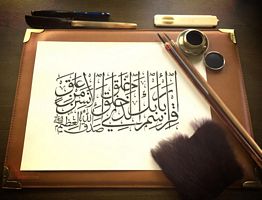 اقرأ باسم ربك الذي خلق خلق الإنسن من علق صدق الله العظيم